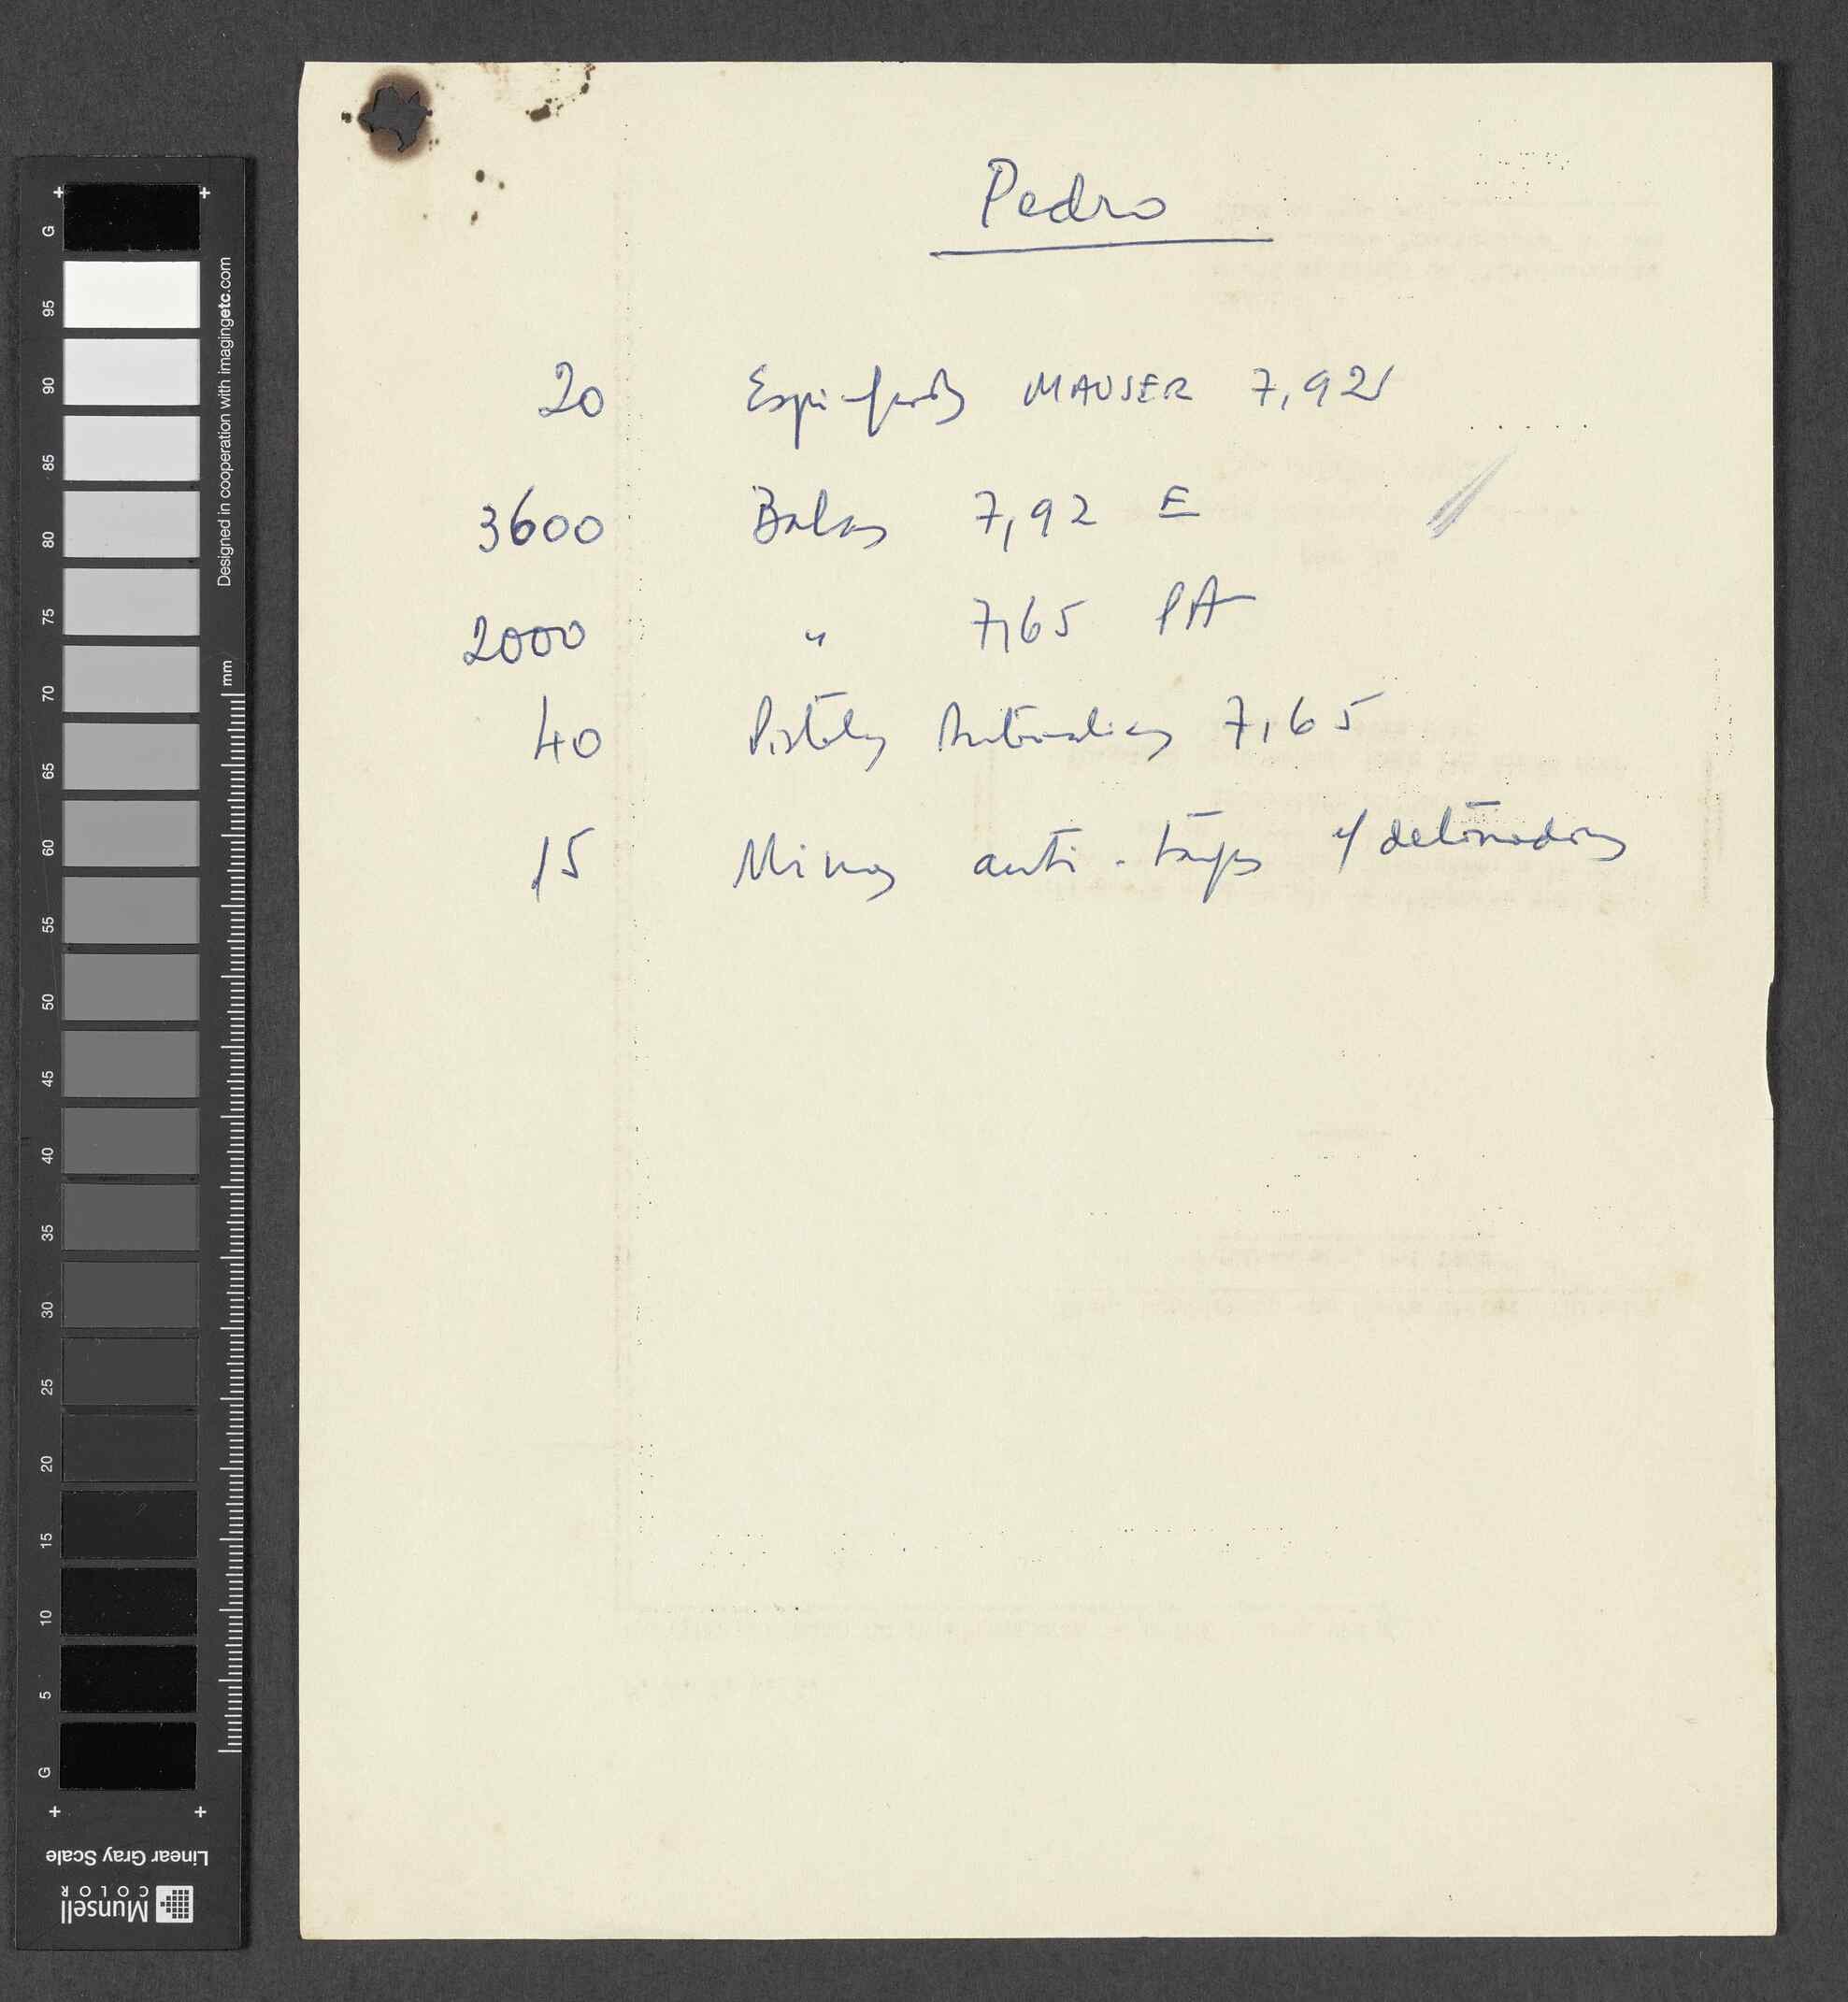 Pedro
20 Espingardas MAUSER 7,92
3600 Balas 7,92 E
2000 " 7,65 PA
40 Pistolas Automáticas 7,65
15 Minas anti-
detonadores
G
95
90
85
80
75
70
65
60
55
50
45
40
35
30
25
20
15
10
5
G
Designed in cooperation with imagingetc.com
mm
Linear Gray Scale
Munsell
COLOR